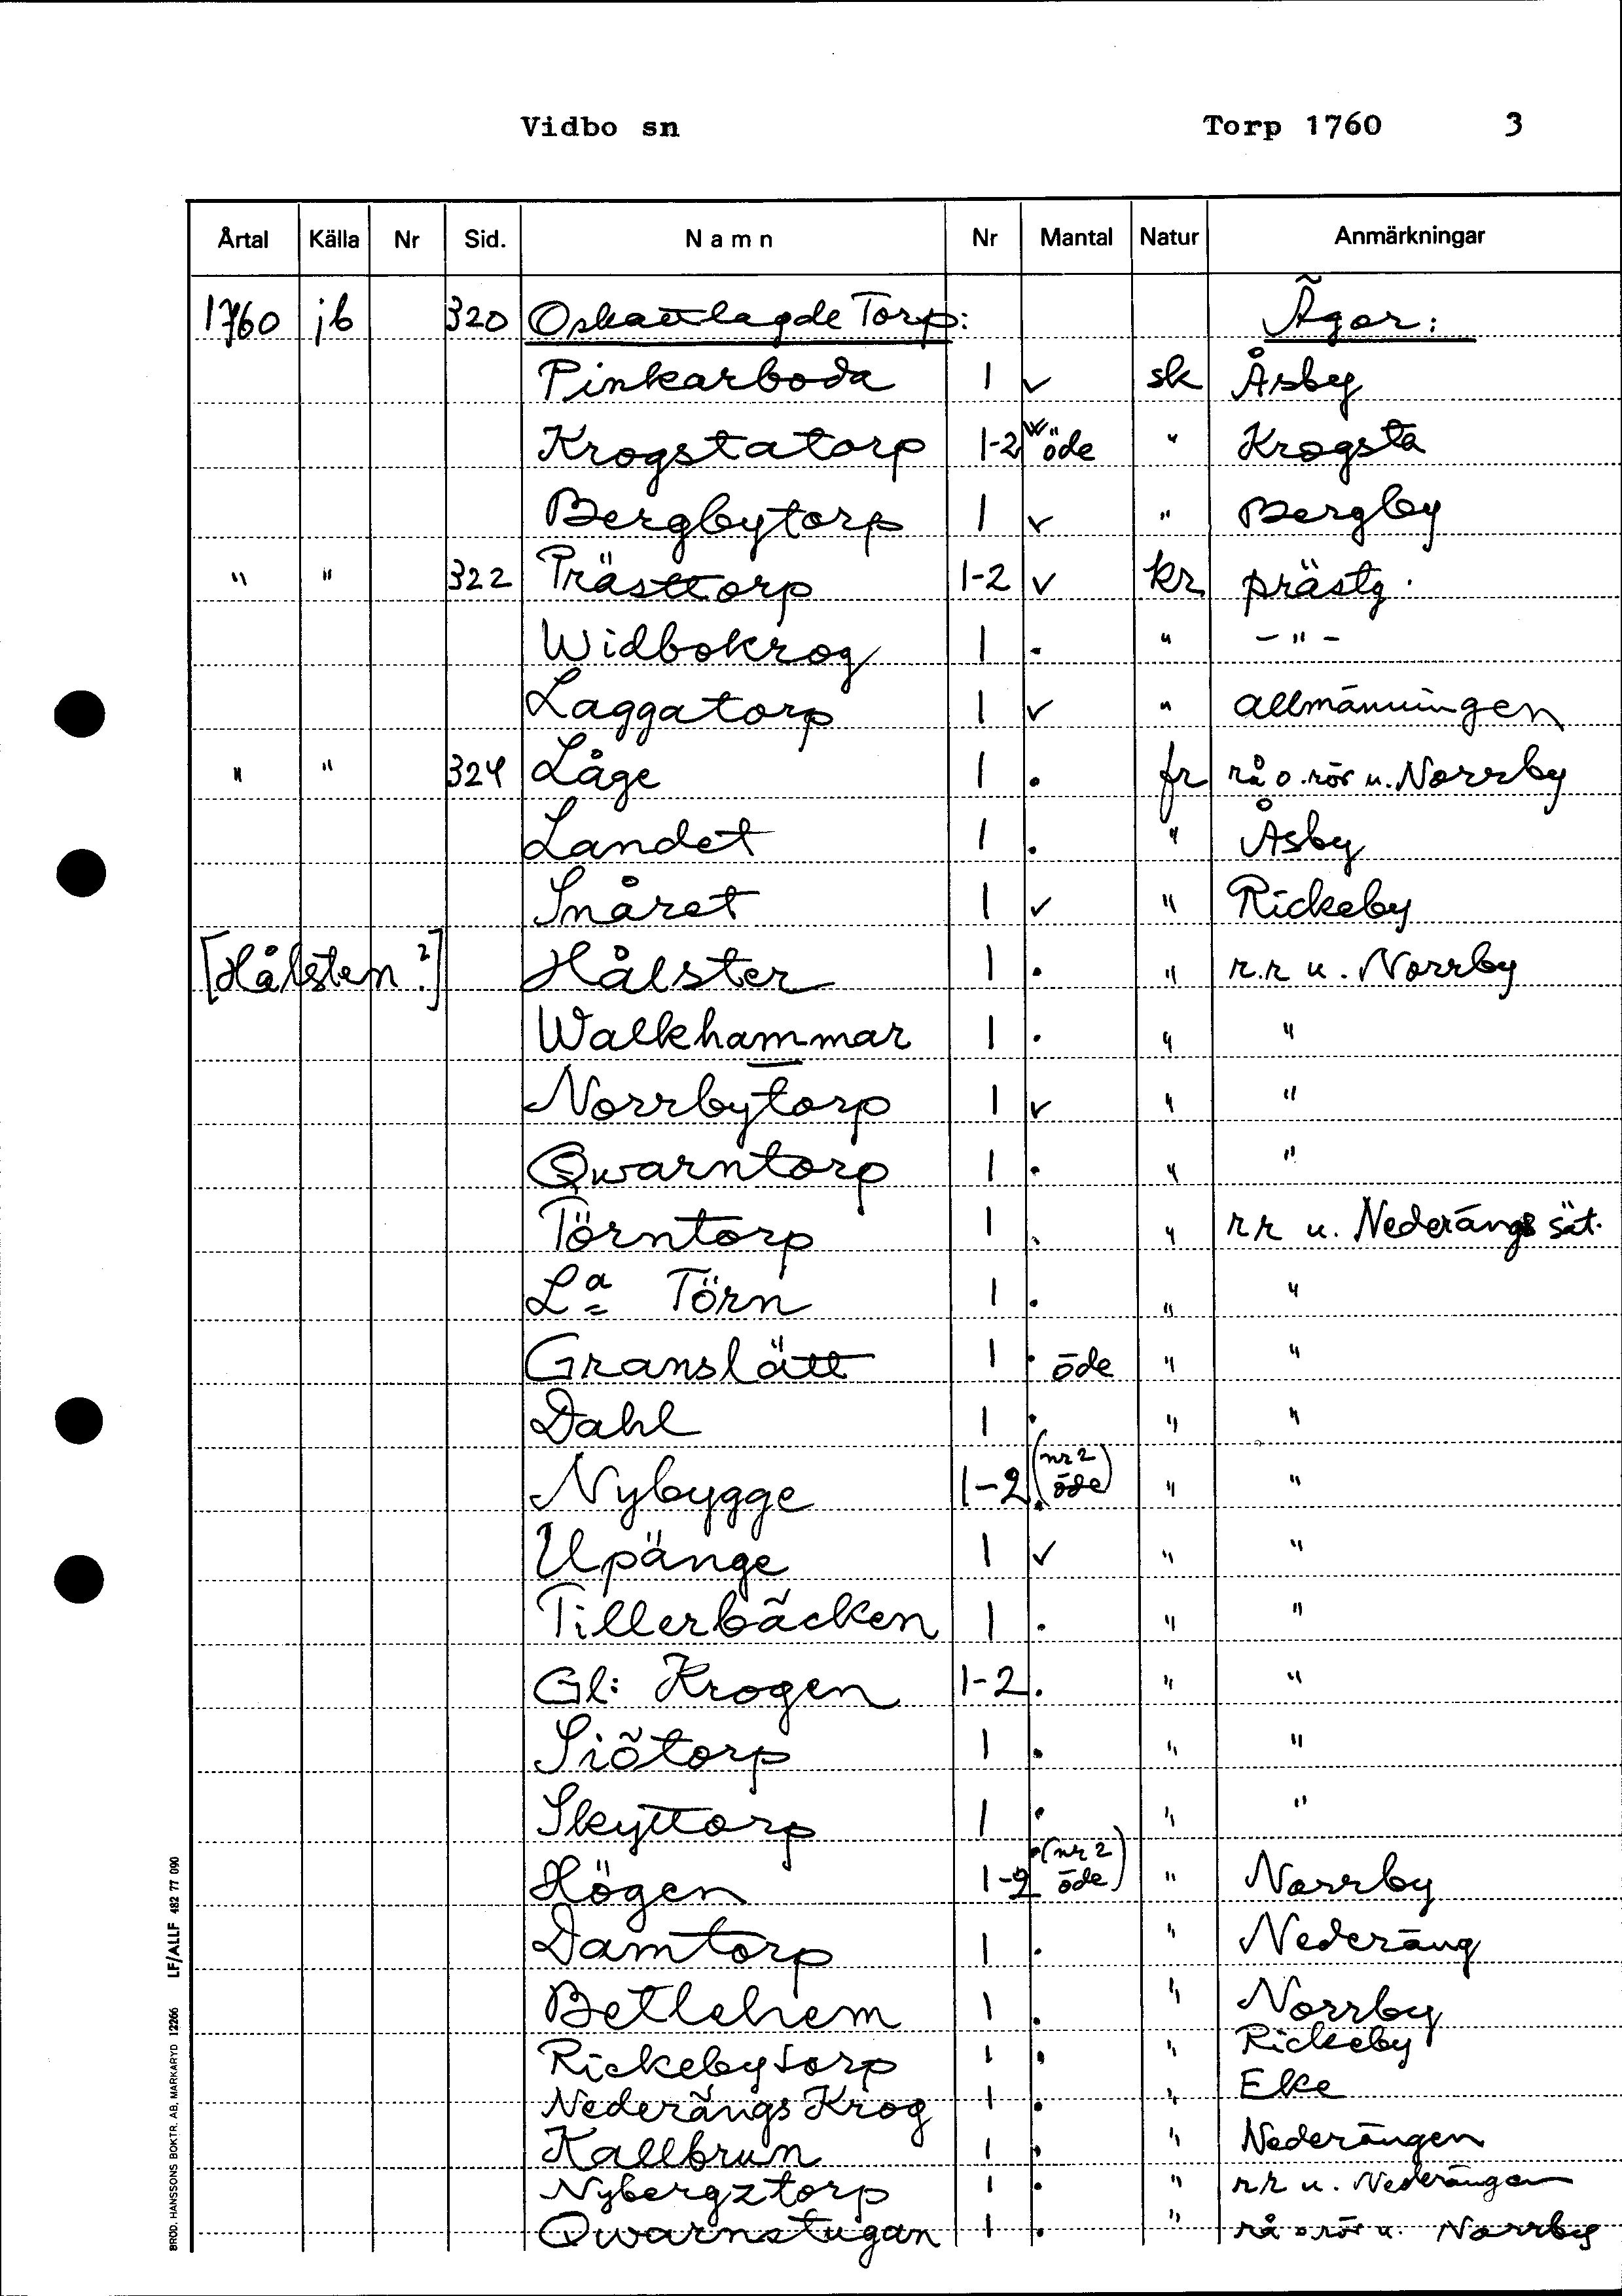 Vidbo sn Torp 1760 3
Årtal Källa Nr Sid. Namn Nr Mantal Natur Anmärkningar
1760 jb 320 Oskattlagde Torp: Ägor:
Pinkarboda 1 v sk Åsby
Krogstatorp 1-2 öde " Krogsta
Bergbytorp 1 v " Bergby
" " 322 Prästtorp 1-2 v kr prästg.
Widbokrog 1 . " -"-
Laggatorp 1 v " allmänningen
" " 324 Låge 1 . fr rå o. rör u. Norrby
Landet 1 . " Åsby
Snåret 1 v " Rickeby
[Hålsten?] Hålster 1 . " r.r u. Norrby
Walkhammar 1 . " "
Norrbytorp 1 v " "
Qwarntorp 1 . " "
Törntorp 1 . " r.r u. Nederängs sät.
La Törn 1 . " "
Granslätt 1 . öde " "
Dahl 1 . " "
Nybygge 1-2 . (nr 2 öde) " "
Upänge 1 v " "
Tillerbäcken 1 . " "
Gl: Krogen 1-2 . " "
Siötorp 1 . " "
Skyttorp 1 . " "
Högen 1-2 . (nr 2 öde) " Norrby
Damtorp 1 . " Nederäng
Betlehem 1 . " Norrby
Rickebytorp 1 . " Rickeby
Nederängs Krog 1 . " Eke
Kallbrun 1 . " Nederängen
Nybergztorp 1 . " r.r u. Nederängen
Qwarnstugan 1 . " rå o rör u. Norrby
BROD. HANSSONS BOKTR. AB, MARKARYD 12266 LF/ALLF 482 77 090